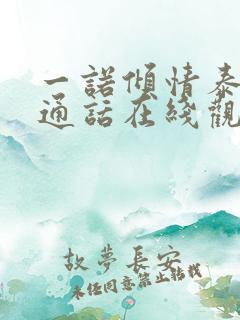 一諾傾情泰
通話在綫觀
故夢長安
未经同意禁止转载